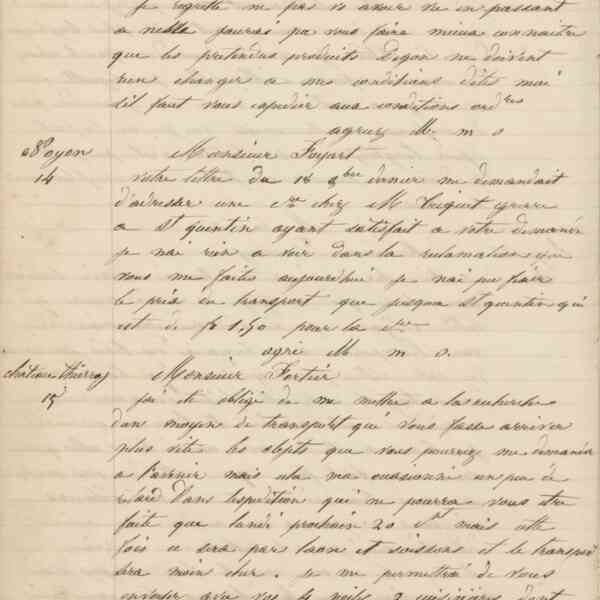 je regrette ne pas vous avoir vu en passant
a pourais pa vous faire mieux connaitre
que les pretendus produits ne doivent
rien changer a mes conditions dites moi
sil faut vous expedier aux conditions ordres
agreez M. m s
Noyon Monsieur Foyart
14 votre lettre du 18 8bre dernier me demandait
d'adresser une chez M
a St quentin ayant satisfait a votre demande
je nai rien a voir dans la reclamation que
vous me faites aujourdhui je nai pu fixer
le prix du transport que jusqua St quentin qui
est de fr 1,50 pour la
agre M m s.
chateau thierry Monsieur Fortier
15 jai ete obligé de me mettre a la recherche
dun moyen de transport qui vous fasse arriver
plus vite les objets que vous pourrez me demander
a l'avenir mais cela ma occasionné un peu de
retard dans lexpedition qui ne pourra vous etre
faite que lundi prochain 20 mais cette
fois ce sera par laon et soissons et le transport
sera moin cher. je me permettrai de vous
envoyer avec vos 4 2 cuisinieres dont